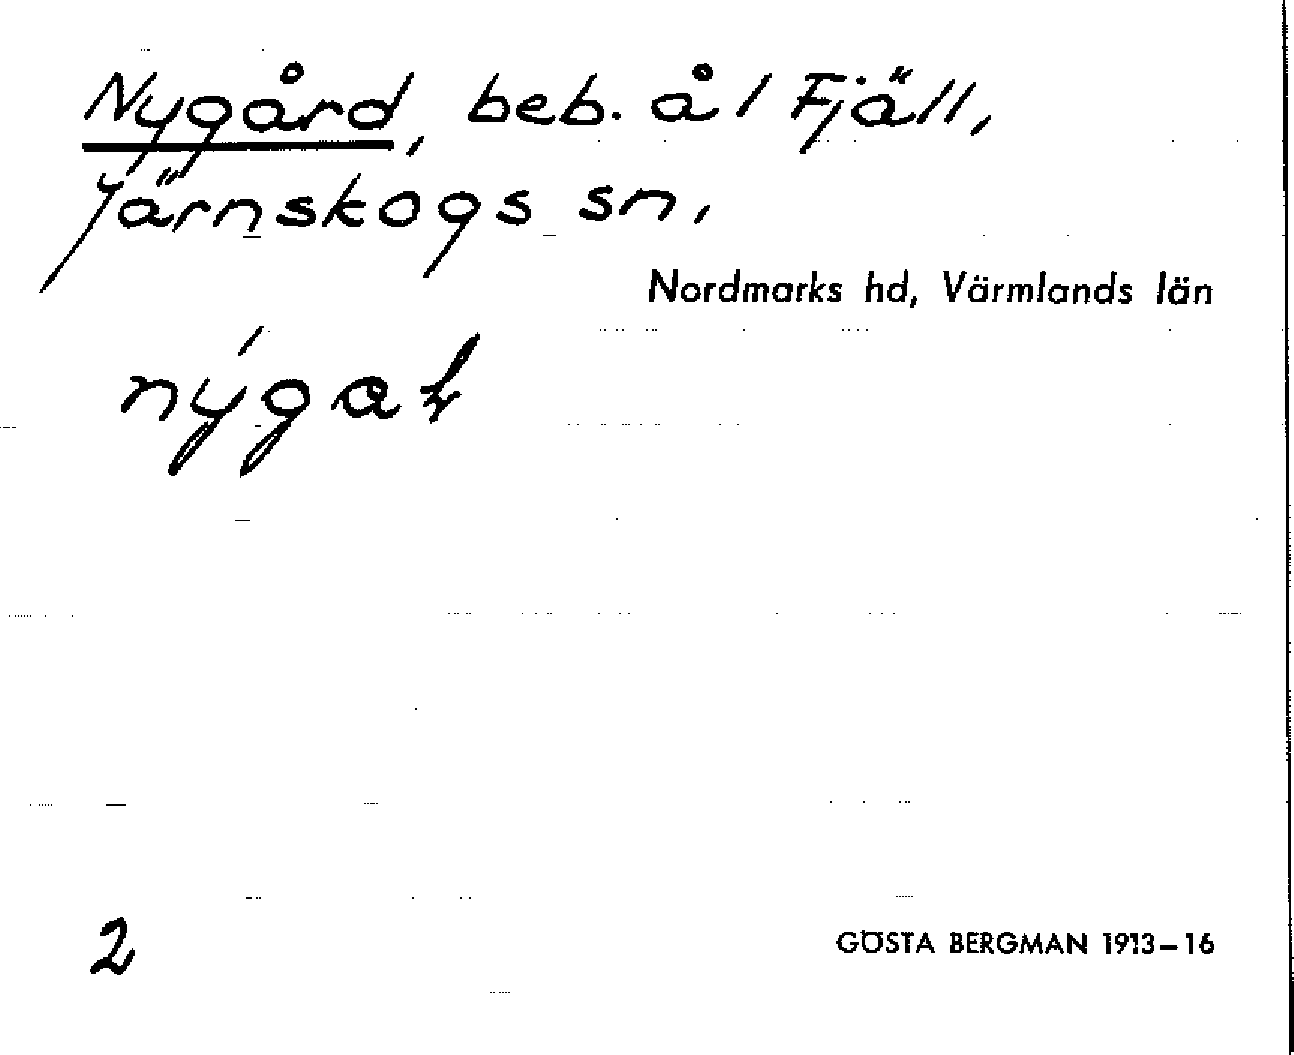 Nygård, beb. å l Fjäll,
Järnskogs sn,
Nordmarks hd, Värmlands län
2
GÖSTA BERGMAN 1913–16